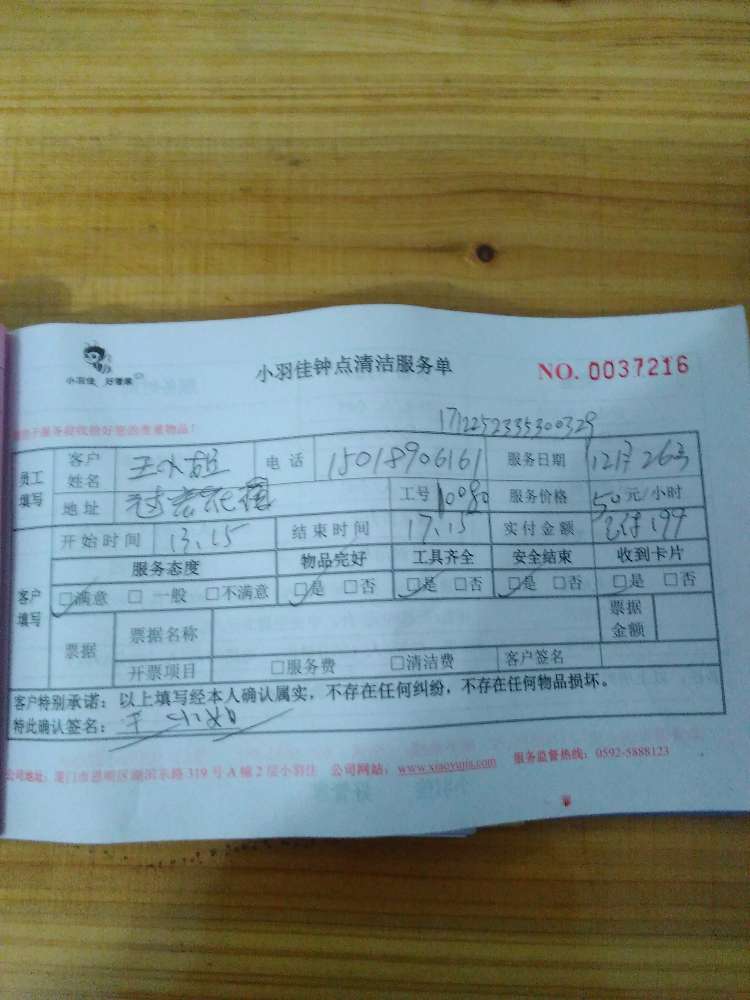 小羽佳 好管家
小羽佳钟点清洁服务单
NO. 0037216
1712252335300329
员工填写 客户姓名 王小姐 电话 15018906161 服务日期 12月26号
地址 工号 10080 服务价格 50元/小时
开始时间 13.15 结束时间 17.15 实付金额 已付199
客户填写 服务态度 物品完好 工具齐全 安全结束 收到卡片
□满意 □一般 □不满意 □是 □否 □是 □否 □是 □否 □是 □否
票据 票据名称 票据金额
开票项目 □服务费 □清洁费 客户签名
客户特别承诺：以上填写经本人确认属实，不存在任何纠纷，不存在任何物品损坏。
特此确认签名：王小姐
公司地址：厦门市思明区湖滨东路319号A幢2层小羽佳 公司网站：www.xiaoyujia.com 服务监督热线：0592-5888123